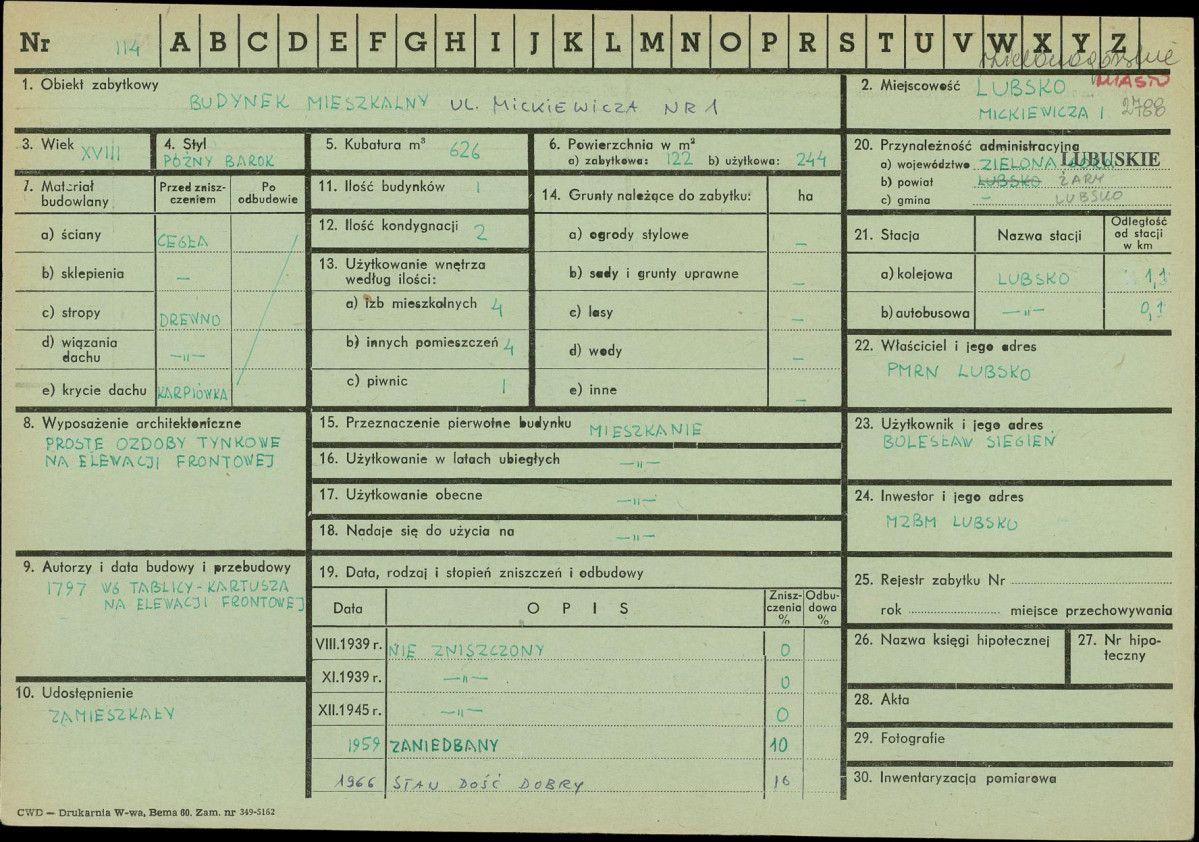 Nr 114 A B C D E F G H I J K L M N O P R S T U V W X Y Z
1. Obiekt zabytkowy
BUDYNEK MIESZKALNY UL. MICKIEWICZA NR 1
2. Miejscowość LUBSKO MIASTO
MICKIEWICZA 1 2788
3. Wiek XVIII
4. Styl
PÓŹNY BAROK
5. Kubatura m³ 626
6. Powierzchnia w m²
a) zabytkowa: 122 b) użytkowa: 244
20. Przynależność administracyjna
a) województwo ZIELONA GÓRA LUBUSKIE
b) powiat LUBSKO ŻARY
c) gmina – LUBSKO
7. Materiał budowlany
Przed zniszczeniem
Po odbudowie
a) ściany CEGŁA
b) sklepienia –
c) stropy DREWNO
d) wiązania dachu –„–
e) krycie dachu KARPIÓWKA
11. Ilość budynków 1
12. Ilość kondygnacji 2
13. Użytkowanie wnętrza
według ilości:
a) izb mieszkalnych 4
b) innych pomieszczeń 4
c) piwnic 1
14. Grunty należące do zabytku: ha
a) ogrody stylowe –
b) sady i grunty uprawne –
c) lasy –
d) wody –
e) inne –
21. Stacja
Nazwa stacji
Odległość od stacji w km
a) kolejowa LUBSKO 1,1
b) autobusowa –„– 0,1
22. Właściciel i jego adres
PMRN LUBSKO
8. Wyposażenie architektoniczne
PROSTE OZDOBY TYNKOWE
NA ELEWACJI FRONTOWEJ
15. Przeznaczenie pierwotne budynku MIESZKANIE
16. Użytkowanie w latach ubiegłych –„–
17. Użytkowanie obecne –„–
18. Nadaje się do użycia na –„–
23. Użytkownik i jego adres
BOLESŁAW SIEGIEŃ
24. Inwestor i jego adres
MZBM LUBSKO
9. Autorzy i data budowy i przebudowy
1797 WG TABLICY-KARTUSZA
NA ELEWACJI FRONTOWEJ
10. Udostępnienie
ZAMIESZKAŁY
19. Data, rodzaj i stopień zniszczeń i odbudowy
Data
OPIS
Zniszczenia %
Odbudowa %
VIII.1939 r. NIE ZNISZCZONY 0
XI.1939 r. –„– 0
XII.1945 r. –„– 0
1959 ZANIEDBANY 10
1966 STAN DOŚĆ DOBRY 16
25. Rejestr zabytku Nr
rok miejsce przechowywania
26. Nazwa księgi hipotecznej
27. Nr hipoteczny
28. Akta
29. Fotografie
30. Inwentaryzacja pomiarowa
CWD — Drukarnia W-wa, Bema 60. Zam. nr 349-5162